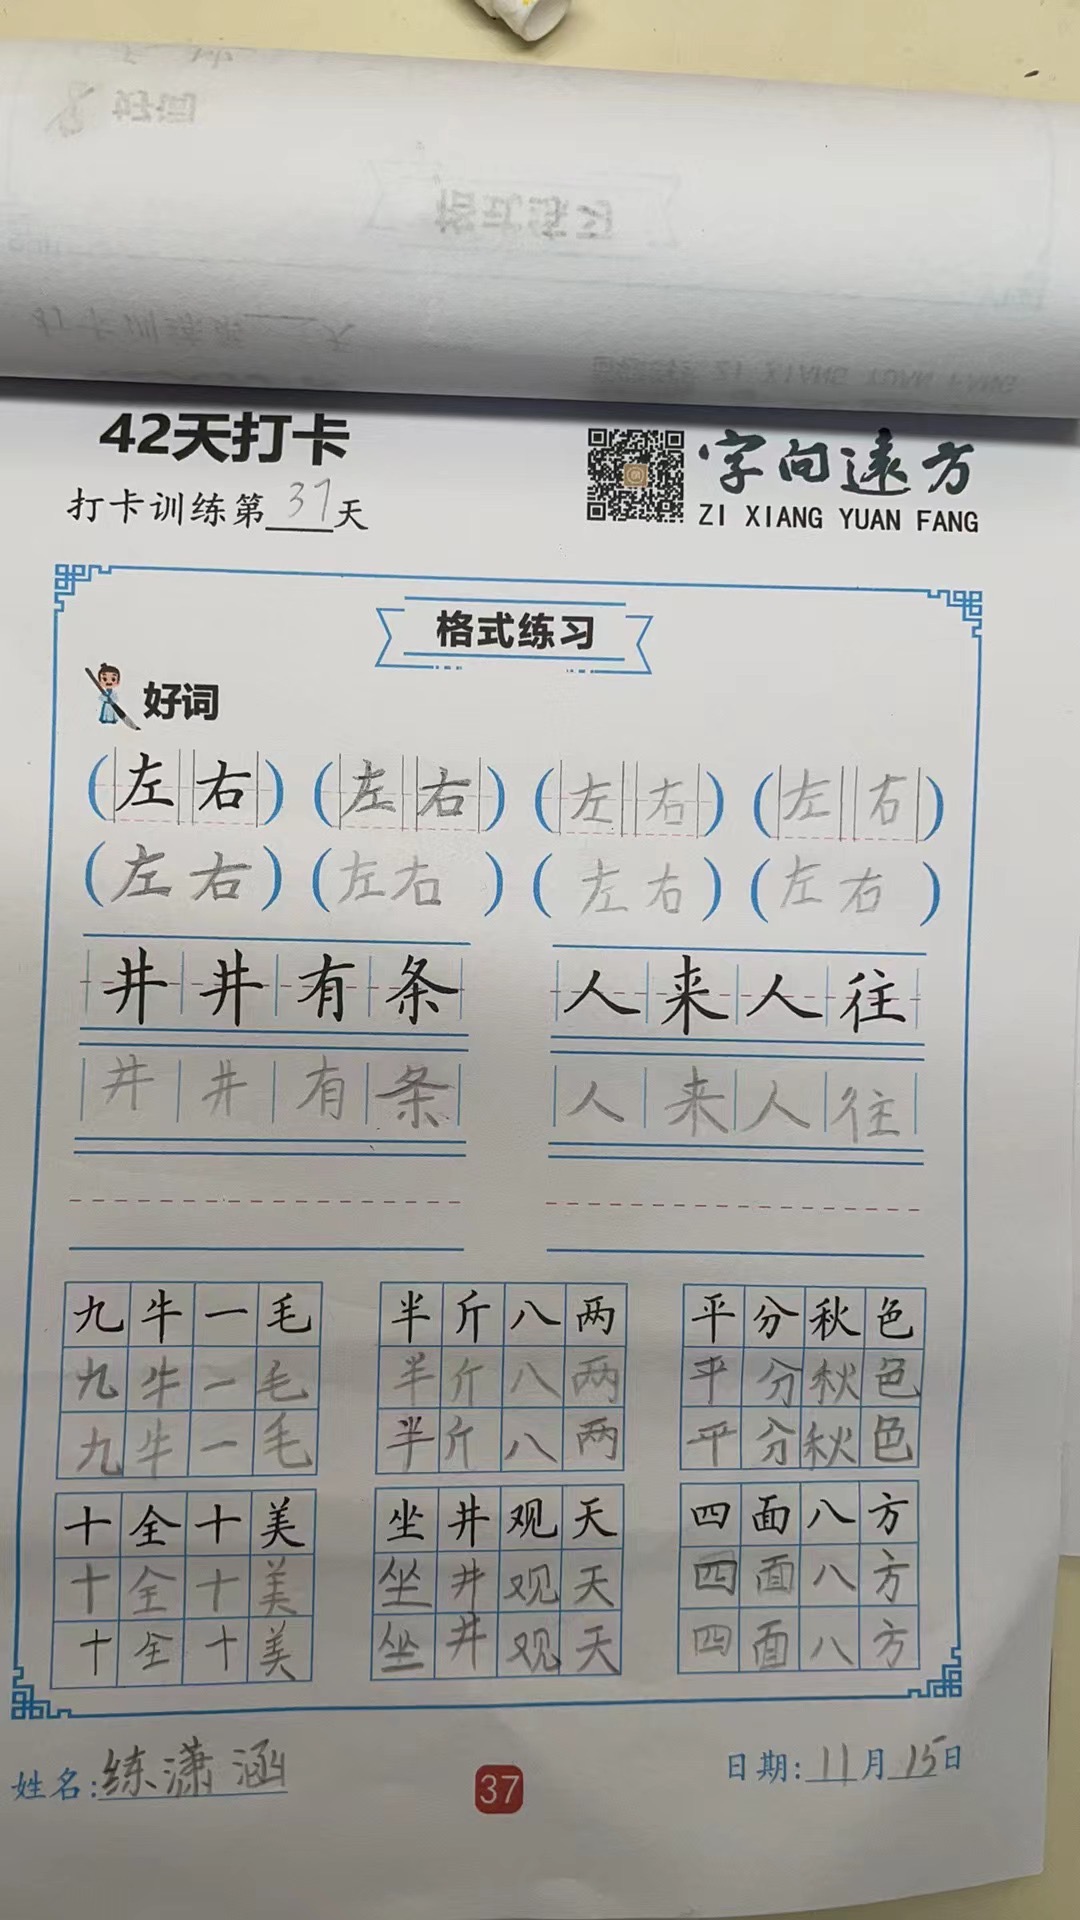 好词
格式练习
打卡训练第 天
ZI XIANG YUAN FANG
42天打卡
字向远方
打卡训练第37天
ZI XIANG YUAN FANG
格式练习
好词
(左右) (左右) (左右) (左右)
(左右) (左右) (左右) (左右)
井井有条 人来人往
井井有条 人来人往
九牛一毛 半斤八两 平分秋色
九牛一毛 半斤八两 平分秋色
九牛一毛 半斤八两 平分秋色
十全十美 坐井观天 四面八方
十全十美 坐井观天 四面八方
十全十美 坐井观天 四面八方
姓名:练潇涵 37 日期:11月15日